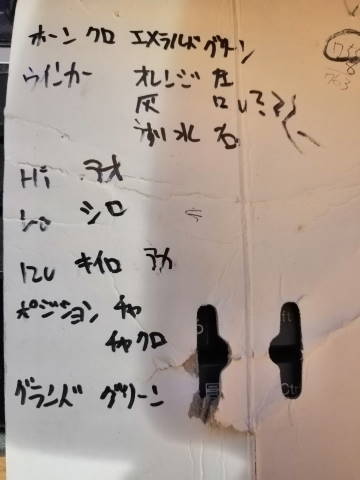 ホーン クロ エメラルドグリーン
ウインカー オレンジ 左
灰
うすい水 右
Hi アカ
Lo シロ
12V キイロ アカ
ポジション チャ
チャクロ
グランド グリーン
Ctr